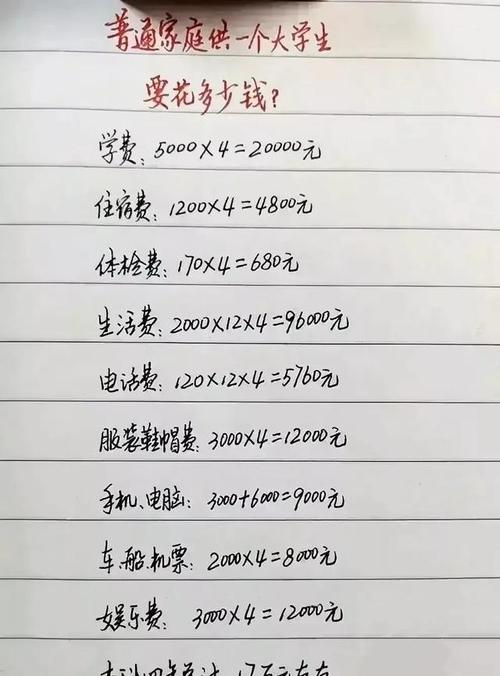 普通家庭供一个大学生
要花多少钱?
学费: 5000×4=20000元
住宿费: 1200×4=4800元
体检费: 170×4=680元
生活费: 2000×12×4=96000元
电话费: 120×12×4=5760元
服装鞋帽费: 3000×4=12000元
手机、电脑: 3000+6000=9000元
车.船.机票: 2000×4=8000元
娱乐费: 3000×4=12000元
17万元左右